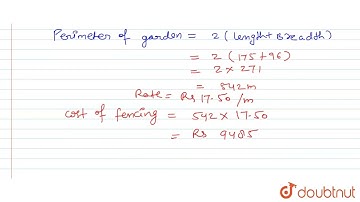 Perimeter of garden = 2 (length + Breadth)
= 2 (175+96)
= 2 × 271
= 542m
Rate = Rs 17.50 /m
cost of fencing = 542 × 17.50
= Rs 9485
doubtnut